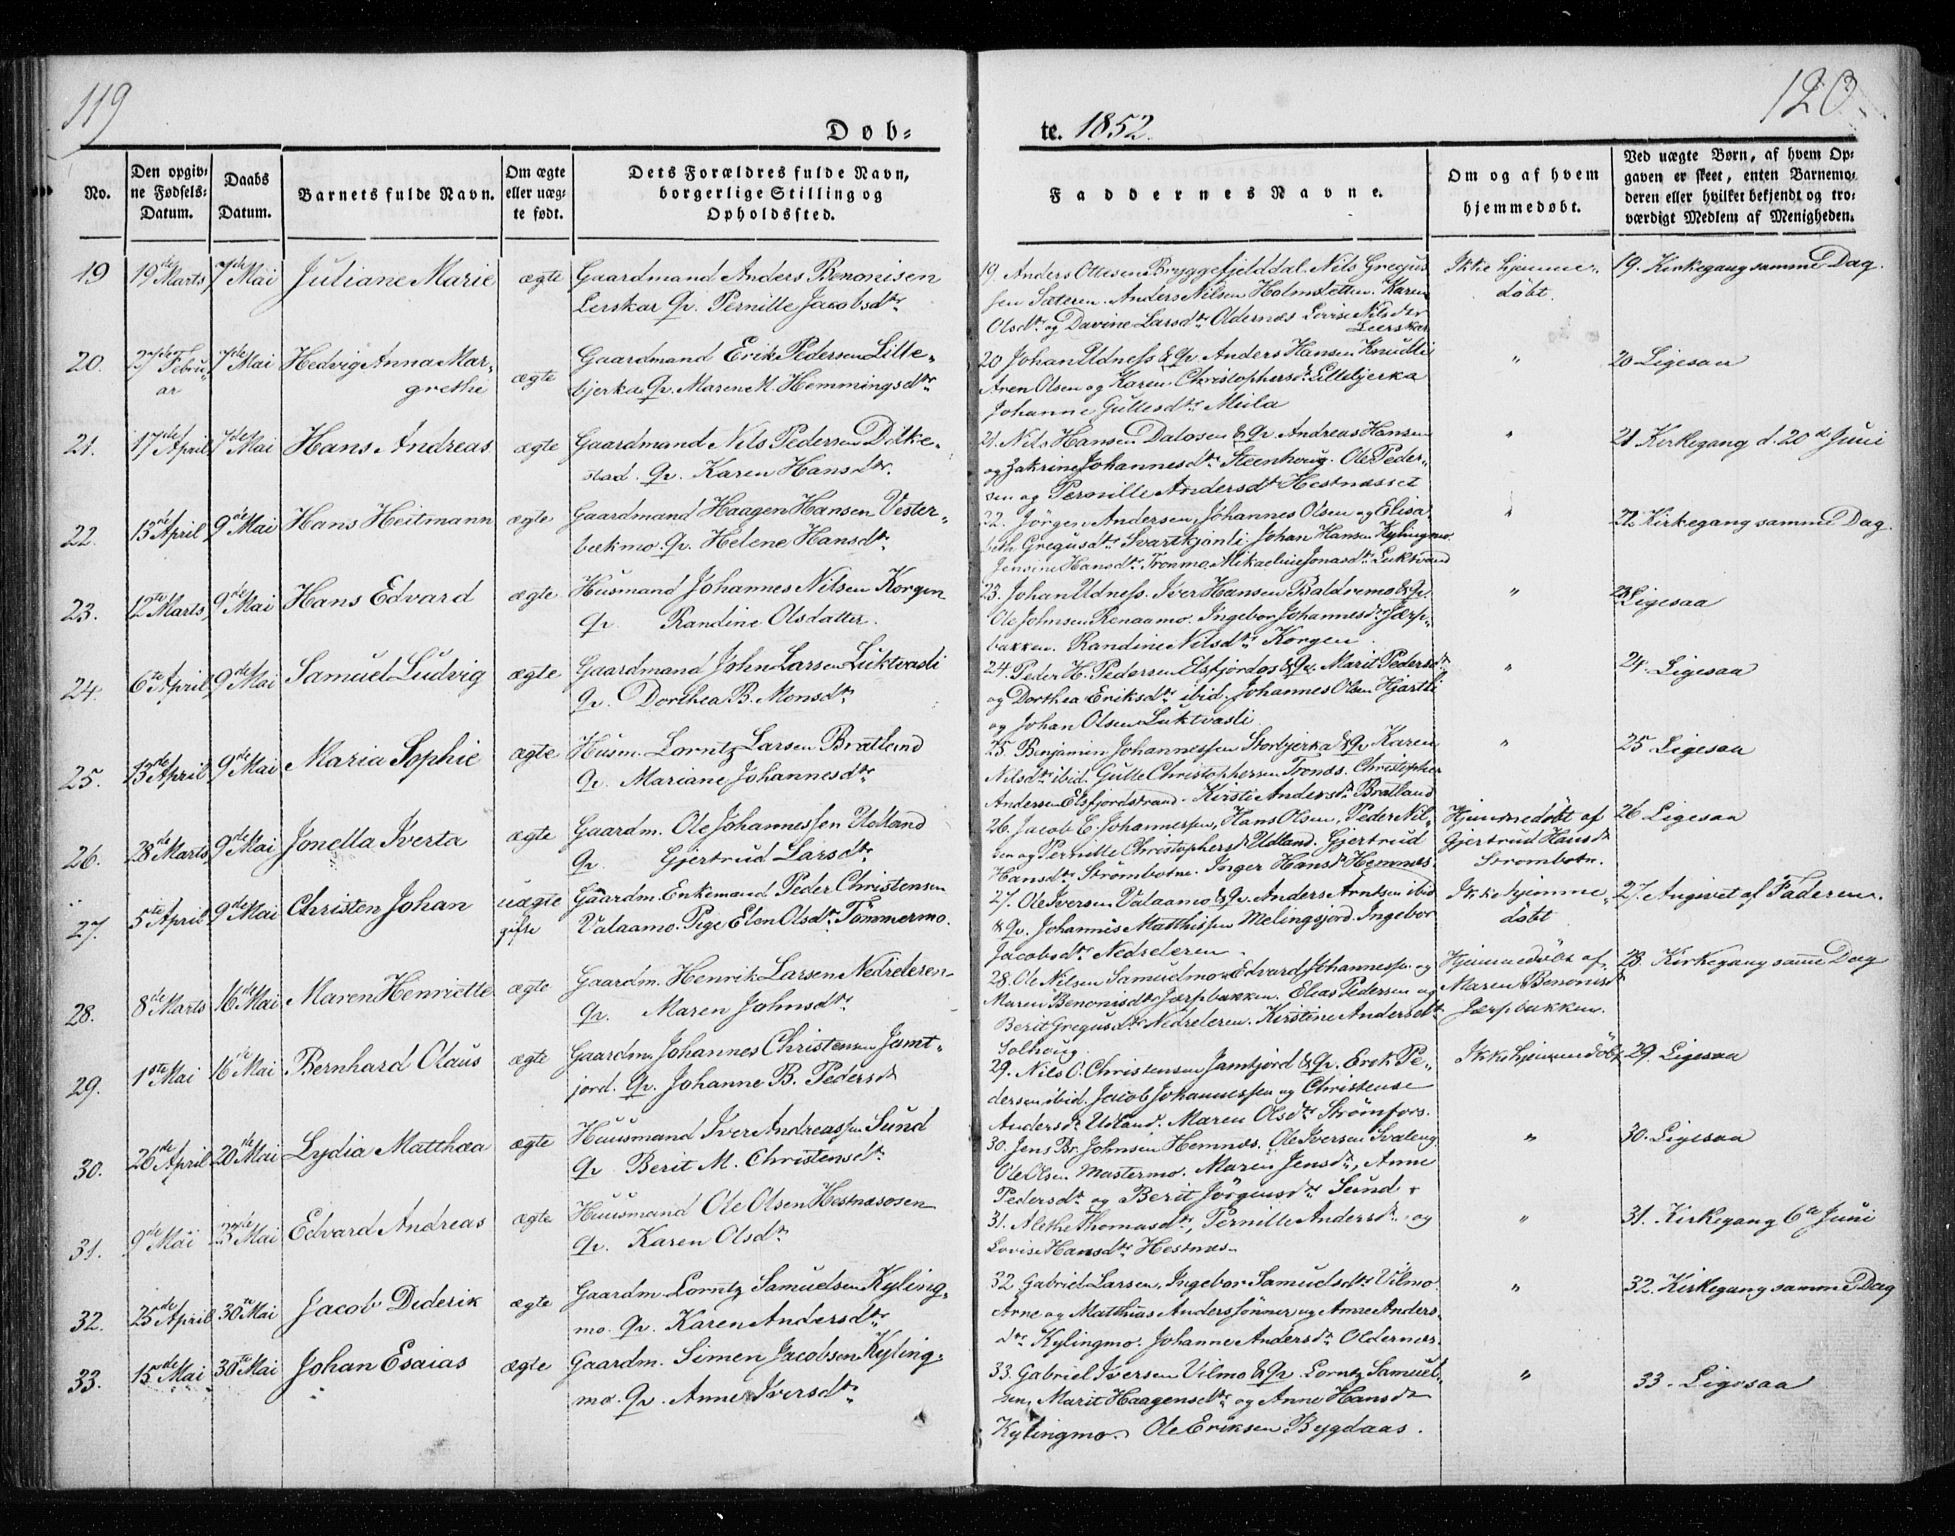 119
120.
Døb=
te. 1852.
No.
Den opgiv=
ne Fødsels=
Datum.
Daabs
Datum.
Barnets fulde Navn.
Om ægte
eller uæg=
te født.
Dets Forældres fulde Navn,
borgerlige Stilling og
Opholdssted.
Faddernes Navne.
Om og af hvem
hjemmedøbt.
Ved uægte Børn, af hvem Op=
gaven er skeet, enten Barnemo=
deren eller hvilket bekjendt og tro=
værdigt Medlem af Menigheden.
19 19de Marts 7de Mai Juliane Marie ægte Gaardmand Anders Benonisen
Lerskar Qv. Pernille Jacobsdtr
19 Anders Ottesen Bryggefjelddal. Nils Gregus
sen Sateren. Anders Nilsen Holmsletten. Karen
Olsdtr og Davine Larsdtr Oldernæs Lovise Nilsdtr
Leerskar
Ikke hjemme=
døbt.
19. Kirkegang samme Dag.
20. 27de Febru
ar 7de Mai Hedvig Anna Mar=
grethe ægte Gaardmand Erik Pedersen Lille=
bjerka Qv. Maren M. Hemmingsdtr
20 Johan Udness & Qv. Anders Hansen Knudli
Aren Olsen og Karen Christophersdr Lillebjerka
Johanne Gullesdtr Meila
"
20 Ligesaa
21. 17de April 7de Mai Hans Andreas ægte Gaardmand Nils Pedersen Dilke=
stad. Qv. Karen Hansdtr.
21. Nils Hansen Dalosen & Qv. Andreas Hansen
og Zakrine Johannesdtr Steenhoug. Ole Peder=
sen og Pernille Andersdtr Hestnæsset
"
21 Kirkegang d. 20de Juni
22. 13de April 9de Mai Hans Heitmann ægte Gaardmand Haagen Hansen Vester=
bækmo. Qv. Helene Hansdtr.
22. Jörgen Andersen, Johannes Olsen og Elisa
beth Gregusdtr Svartkjønli. Johan Hansen Kylingmo
Jensine Hansdtr Tronmo. Mikaeline Jonasdtr Luktvand
"
22 Kirkegang samme Dag.
23. 12te Marts 9de Mai Hans Edvard ægte Husmand Johannes Nilsen Korgen
Qv. Randine Olsdatter.
23. Johan Udness. Iver Hansen Baldremo & Qv.
Ole Johnsen Renaamo. Ingebor Johannesdtr Jærp=
bakken. Randine Nilsdtr Korgen.
"
23 Ligesaa
24. 6te April 9de Mai Samuel Ludvig ægte Gaardmand John Larsen Luktvasli
Qv. Dorthea B. Monsdtr
24. Peder H. Pedersen Elsfjordos & Qv. Marit Pedersdtr
og Dorthea Eriksdtr ibid. Johannes Olsen Hjartli
og Johan Olsen Luktvasli
"
24. Ligesaa
25. 13de April 9de Mai Maria Sophie ægte Husm. Lorntz Larsen Bratland
Qv. Mariane Johannesdtr
25. Benjamin Johannessen Storbjerka & Qv. Karen
Nilsdtr ibid. Gulle Christophersen Tronds. Christopher
Andersen Elsfjordstrand. Kirsti Andersdr Bratland
"
25 Ligesaa
26. 28de Marts 9de Mai Jonella Iverta ægte Gaardm. Ole Johannessen Utland
Qv. Gjertrud Larsdtr
26. Jacob E. Johannessen, Hans Olsen, Peder Nil=
sen og Pernille Christophersdr Utland. Gjertrud
Hansdtr Strømbotne. Inger Hansdr Hemnæs
Hjemmedøbt af
Gjertrud Hansdr
Strømbotn.
26 Ligesaa
27. 5te April 9de Mai Christen Johan uægte
gifte Gaardm. Enkemand Peder Christensen
Valaamo. Pige Elen Olsdtr. Tömmermo.
27. Ole Iversen Valaamo & Qv. Anders Arntsen ibid
& Qv. Johannes Matthissen Melingsjord. Ingebor
Jacobsdtr Nedreleren
Ikke hjemme
døbt
27. Angivet af Faderen.
28. 8de Marts 16de Mai Maren Henriette ægte Gaardm. Henrik Larsen Nedreleren
Qv. Maren Johnsdtr
28. Ole Nilsen Samuelmo. Edvard Johannessen og
Maren Benonisdtr Jærpbakken. Elias Pedersen og
Berit Gregusdtr Nedreleren. Kirstine Andersdtr
Solhoug
Hjemmedøbt af
Maren Benonisd
Jærpbakken.
28. Kirkegang same Dag
29. 1ste Mai 16de Mai Bernhard Olaus ægte Gaardm. Johannes Christensen Jamt=
jord. Qv. Johanne B. Pedersdr
29. Nils O. Christensen Jamtjord & Qv. Erik Pe=
dersen ibid. Jacob Johannessen og Christense
Andersdr Utland. Maren Olsdtr Strømfors.
Ikke hjemmedöbt
29. Ligesaa
30. 26de April 20de Mai Lydia Matthea ægte Huusmand Iver Andreassen Sund
Qv. Berit M. Christensdtr
30. Jens Br. Johnsen Hemnæs. Ole Iversen Svaleng
Ole Olsen Mastermo. Maren Jensdtr, Anne
Pedersdtr og Berit Jörgensdtr Sund.
"
30. Ligesaa
31. 9de Mai 23de Mai Edvard Andreas ægte Huusmand Ole Olsen Hestnæsosen
Qv. Karen Olsdtr
31. Alethe Thomasdtr, Pernille Andersdtr og
Lovise Hansdtr Hestnæs
"
31. Kirkegang 6te Juni
32. 25de April 30te Mai Jacob Diderik ægte Gaardm Lorntz Samuelsen Kyling=
mo. Qv. Karen Andersdtr
32 Gabriel Larsen, Ingebor Samuelsdtr Vilmo
Arne og Matthias Anderssønner og Anne Anders=
dtr Kylingmo. Johanne Andersdr Oldernæs
"
32. Kirkegang samme Dag
33. 15de Mai 30te Mai Johan Esaias ægte Gaardm. Simen Jacobsen Kyling=
mo. Qv. Anne Iversdtr
33. Gabriel Iversen Vilmo & Qv. Lorntz Samuel=
sen, Marit Haagensdtr og Anne Hansdr
Kylingmo. Ole Eriksen Bygdaas.
"
33. Ligesaa